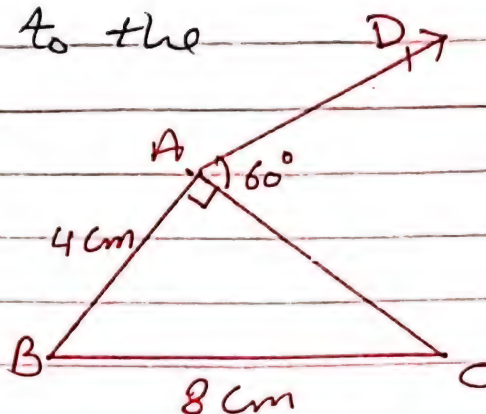 to the
D
A
60°
4 cm
B
C
8 cm